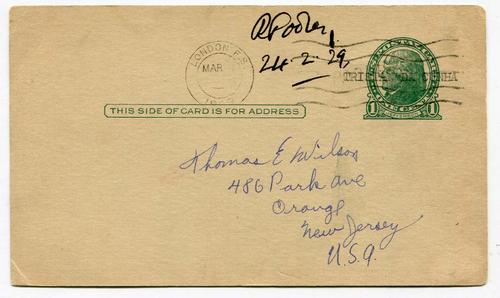 24-2-29
LONDON F.S.
MAR
TRISTAN DA CUNHA
1 1
THIS SIDE OF CARD IS FOR ADDRESS
Thomas E Wilson
486 Park ave
Orange
New Jersey
U.S.a.